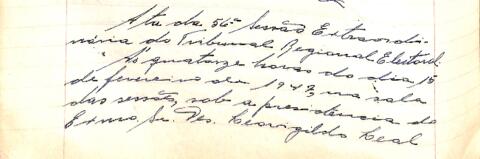 Ata da 56ª Sessão Extraordi-
nária do Tribunal Regional Eleitoral.
Ás quatorze horas do dia 15
de fevereiro de 1947, na sala
das sessões, sob a presidencia do
Exmo. Sr. Des. Leovigildo Leal